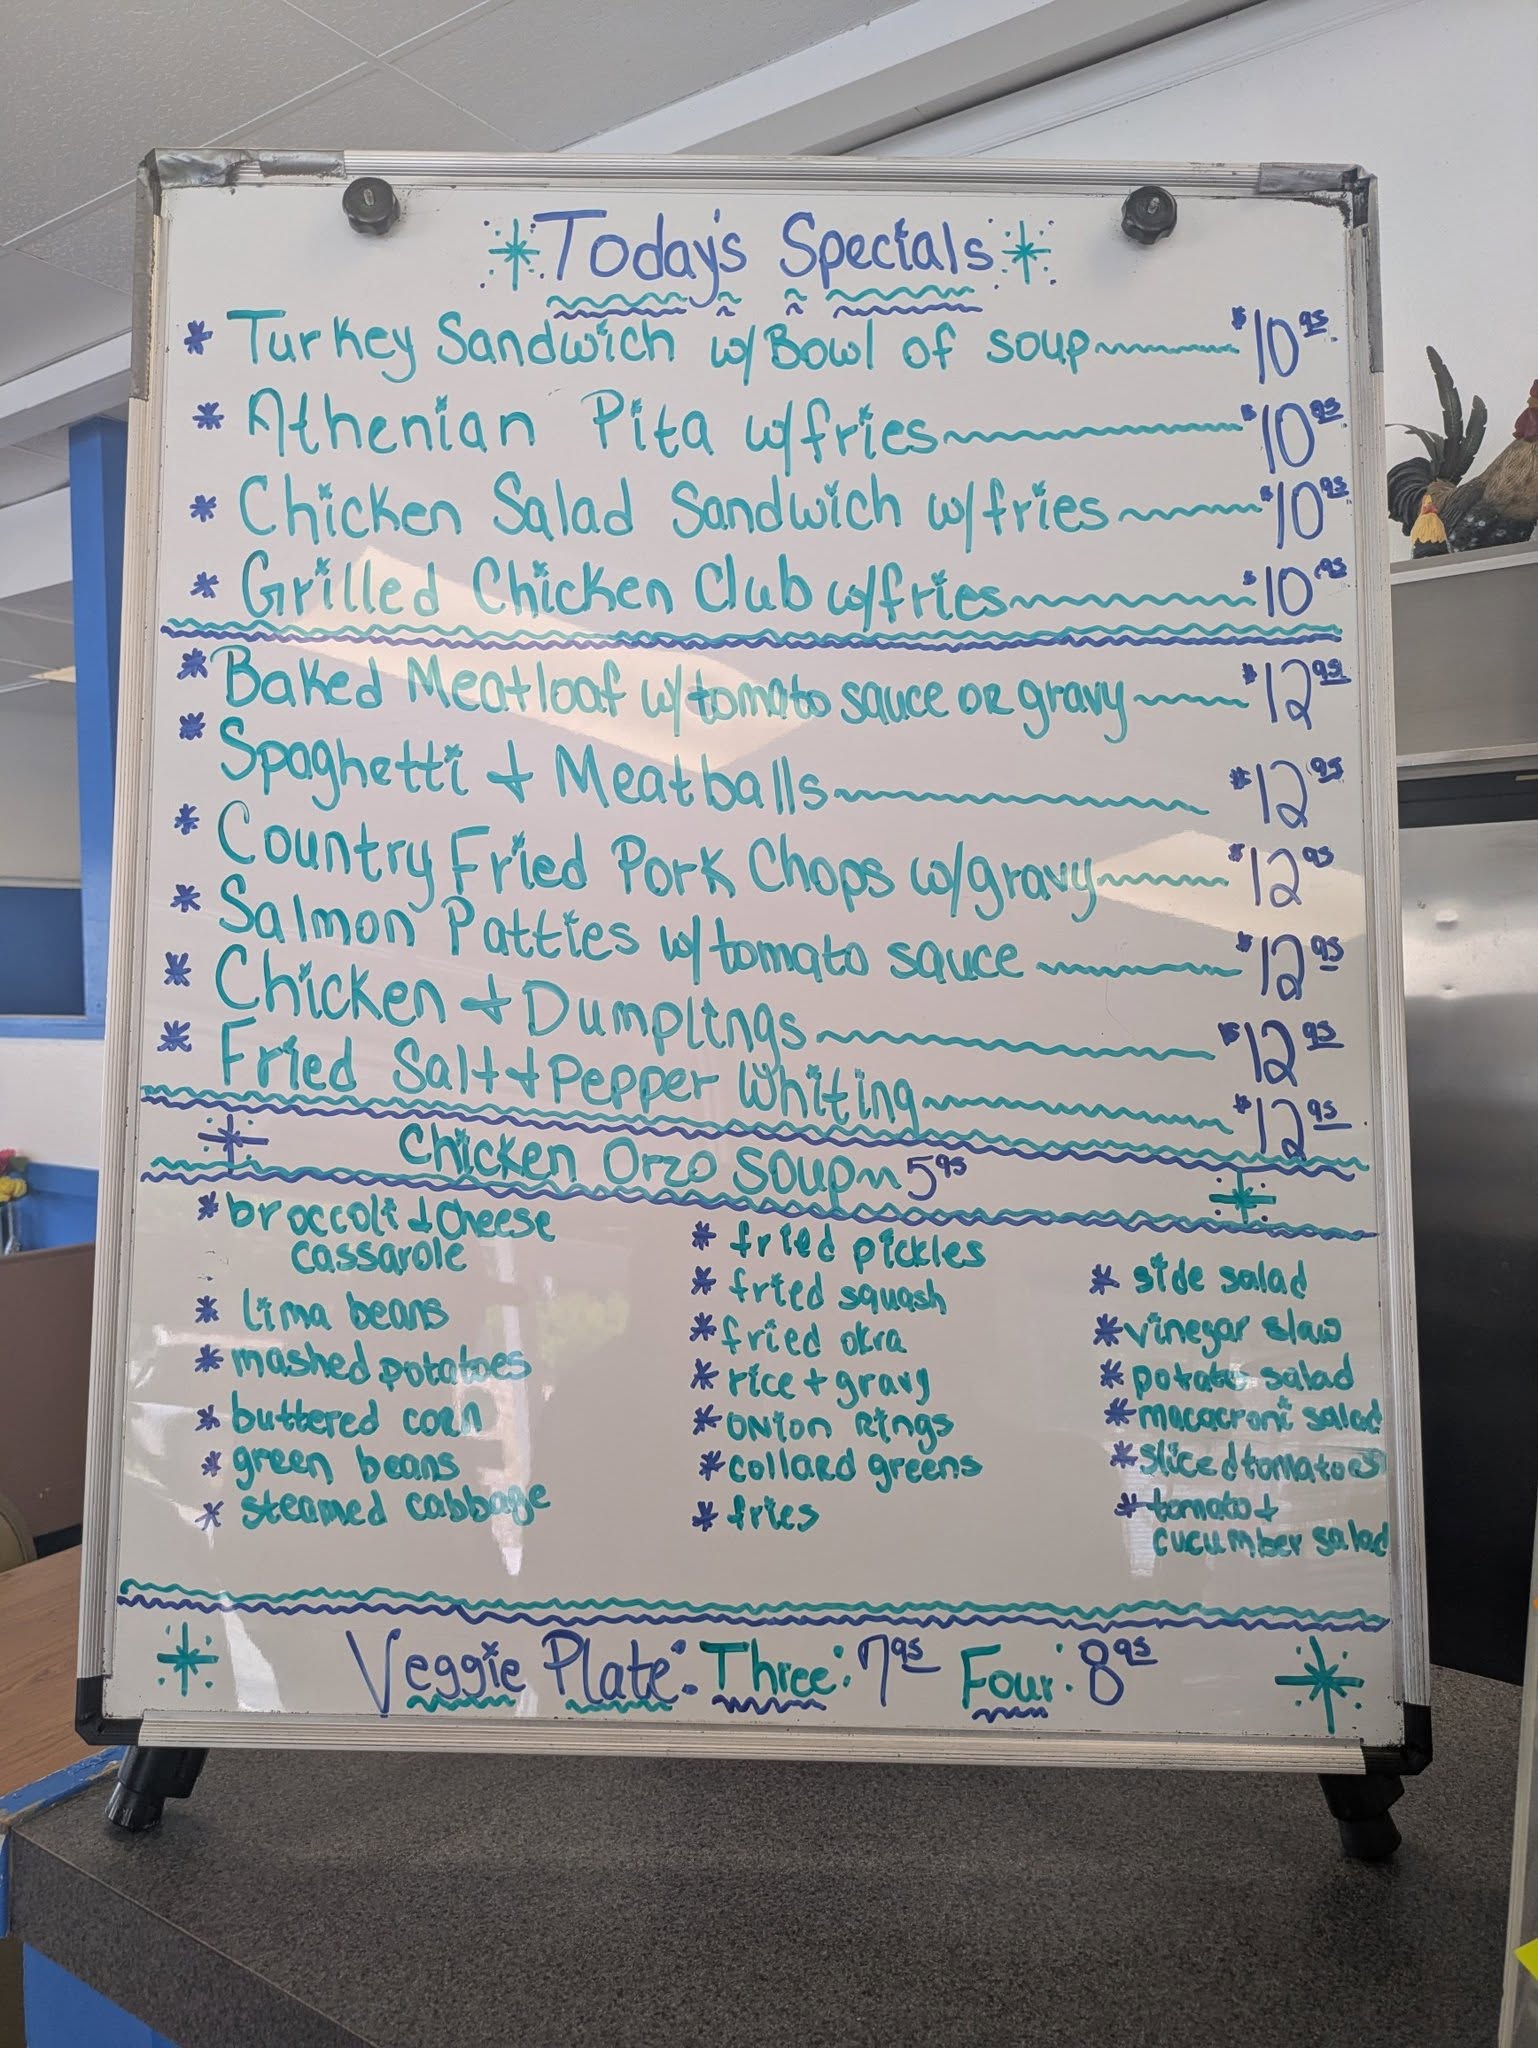 Today's Specials
* Turkey Sandwich w/Bowl of soup $10.95
* Athenian Pita w/fries $10.95
* Chicken Salad Sandwich w/fries $10.95
* Grilled Chicken Club w/fries $10.95
* Baked Meatloaf w/tomato sauce or gravy $12.95
* Spaghetti + Meatballs $12.95
* Country Fried Pork Chops w/gravy $12.95
* Salmon Patties w/tomato sauce $12.95
* Chicken + Dumplings $12.95
* Fried Salt + Pepper Whiting $12.95
Chicken Orzo Soup 5.95
* broccoli + cheese
cassarole
* lima beans
* mashed potatoes
* buttered corn
* green beans
* steamed cabbage
* fried pickles
* fried squash
* fried okra
* rice + gravy
* onion rings
* collard greens
* fries
* side salad
* vinegar slaw
* potato salad
* macacroni salad
* sliced tomatoes
* tomato +
cucumber salad
Veggie Plate: Three: 7.95 Four: 8.95